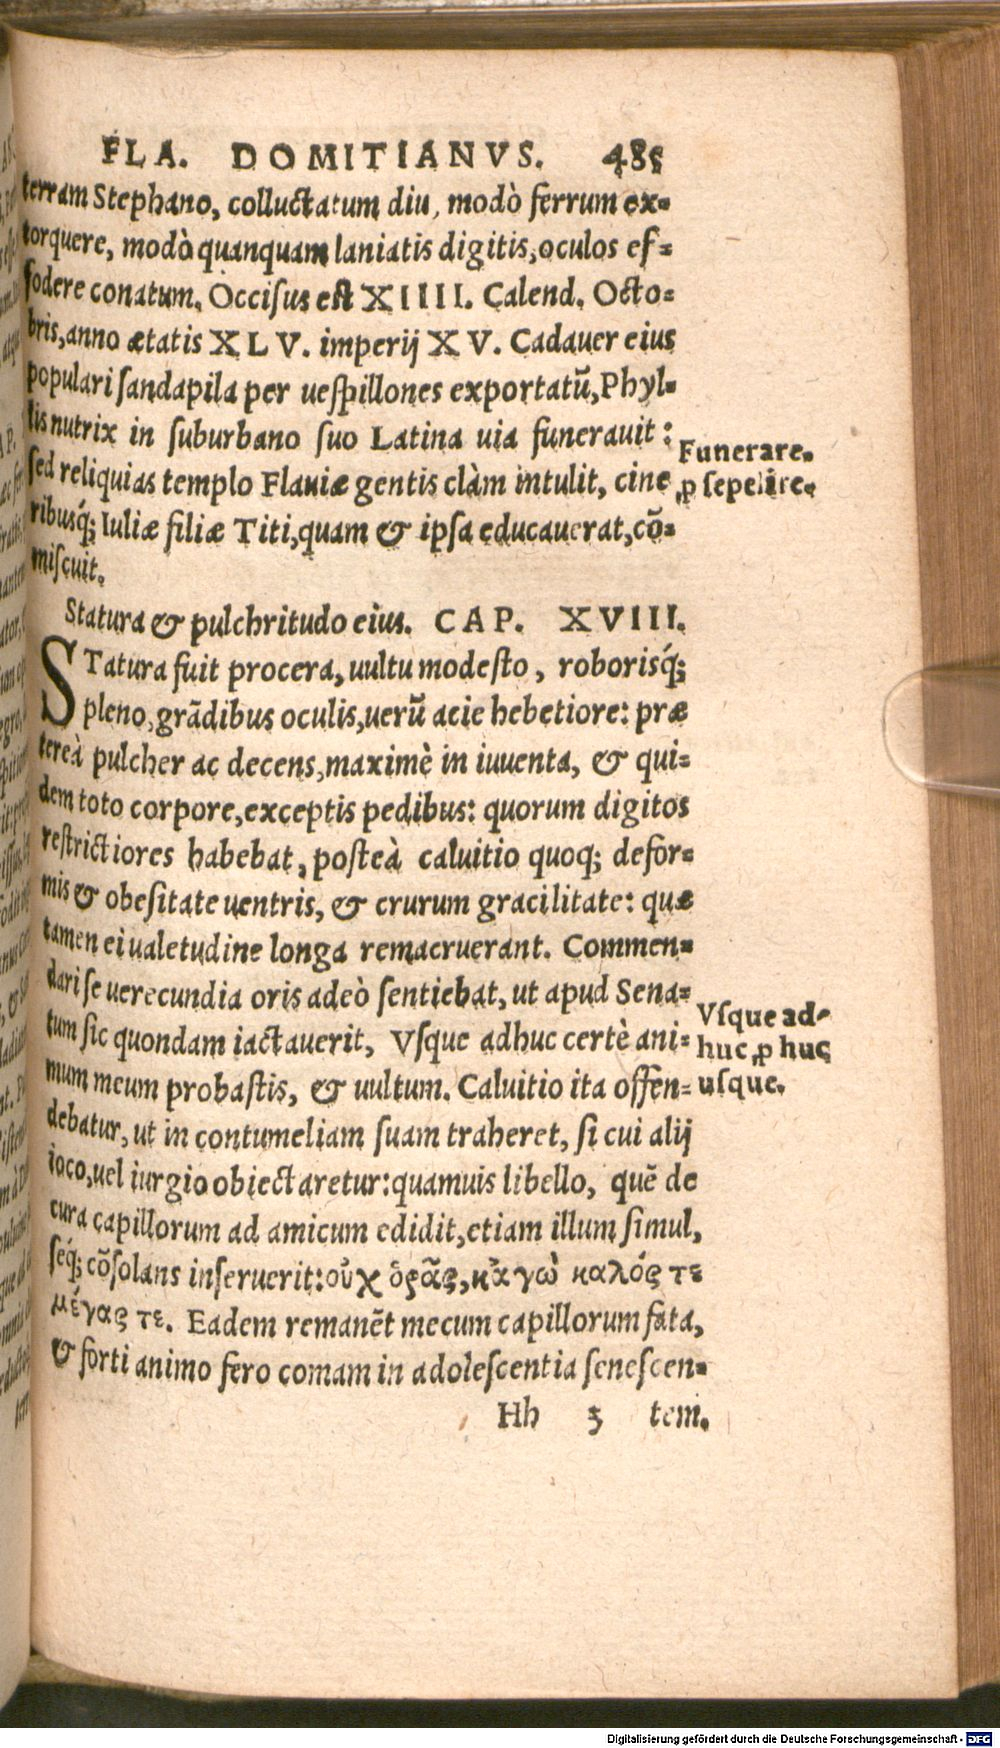 FLA. DOMITIANVS. 485
terram Stephano, colluctatum diu, modò ferrum ex-
torquere, modò quanquam laniatis digitis, oculos ef-
fodere conatum. Occisus est XIIII. Calend. Octo-
bris, anno ætatis XLV. imperij XV. Cadauer eius
populari sandapila per uespillones exportatũ, Phyl-
lis nutrix in suburbano suo Latina uia funerauit:
sed reliquias templo Flauiæ gentis clàm intulit, cine
ribusq́; Iuliæ filiæ Titi, quam & ipsa educauerat, cõ-
miscuit.
Funerare.
ꝓ sepelire.
Statura & pulchritudo eius. CAP. XVIII.
STatura fuit procera, uultu modesto, roborisq́;
pleno, grãdibus oculis, uerũ acie hebetiore: præ
tereà pulcher ac decens, maximè in iuuenta, & qui-
dem toto corpore, exceptis pedibus: quorum digitos
restrictiores habebat, posteà caluitio quoq; defor-
mis & obesitate uentris, & crurum gracilitate: quæ
tamen ei ualetudine longa remacruerant. Commen-
dari se uerecundia oris adeò sentiebat, ut apud Sena-
tum sic quondam iactauerit, Vsque adhuc certè ani-
mum meum probastis, & uultum. Caluitio ita offen-
debatur, ut in contumeliam suam traheret, si cui alij
ioco, uel iurgio obiectaretur: quamuis libello, quẽ de
cura capillorum ad amicum edidit, etiam illum simul,
seq́; cõsolans inseruerit: οὐχ ὁρᾷς, κἀγὼ καλός τε
μέγας τε. Eadem remanẽt mecum capillorum fata,
& forti animo fero comam in adolescentia senescen-
Vsque ad-
huc ꝓ huc
usque.
Hh 5 tem.
Digitalisierung gefördert durch die Deutsche Forschungsgemeinschaft - DFG